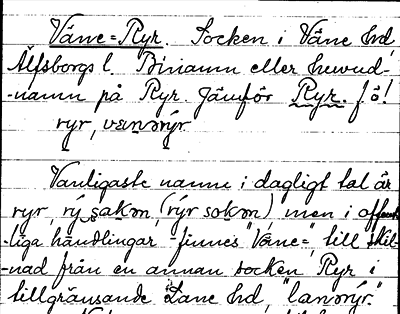 Väne-Ryr. Socken i Väne hd,
Älfsborgs l. Binamn eller huvud-
-namn på Ryr. Jämför Ryr. f ö!
ryr, vɛnɵrýr
Vanligaste namn i dagligt tal är
ryr, rý sokm, (rýr sokm) men i offent-
-liga handlingar finnes "Väne=", till skil-
-nad från en annan socken Ryr i
tillgränsande Lane hd, "lanɵrýr."